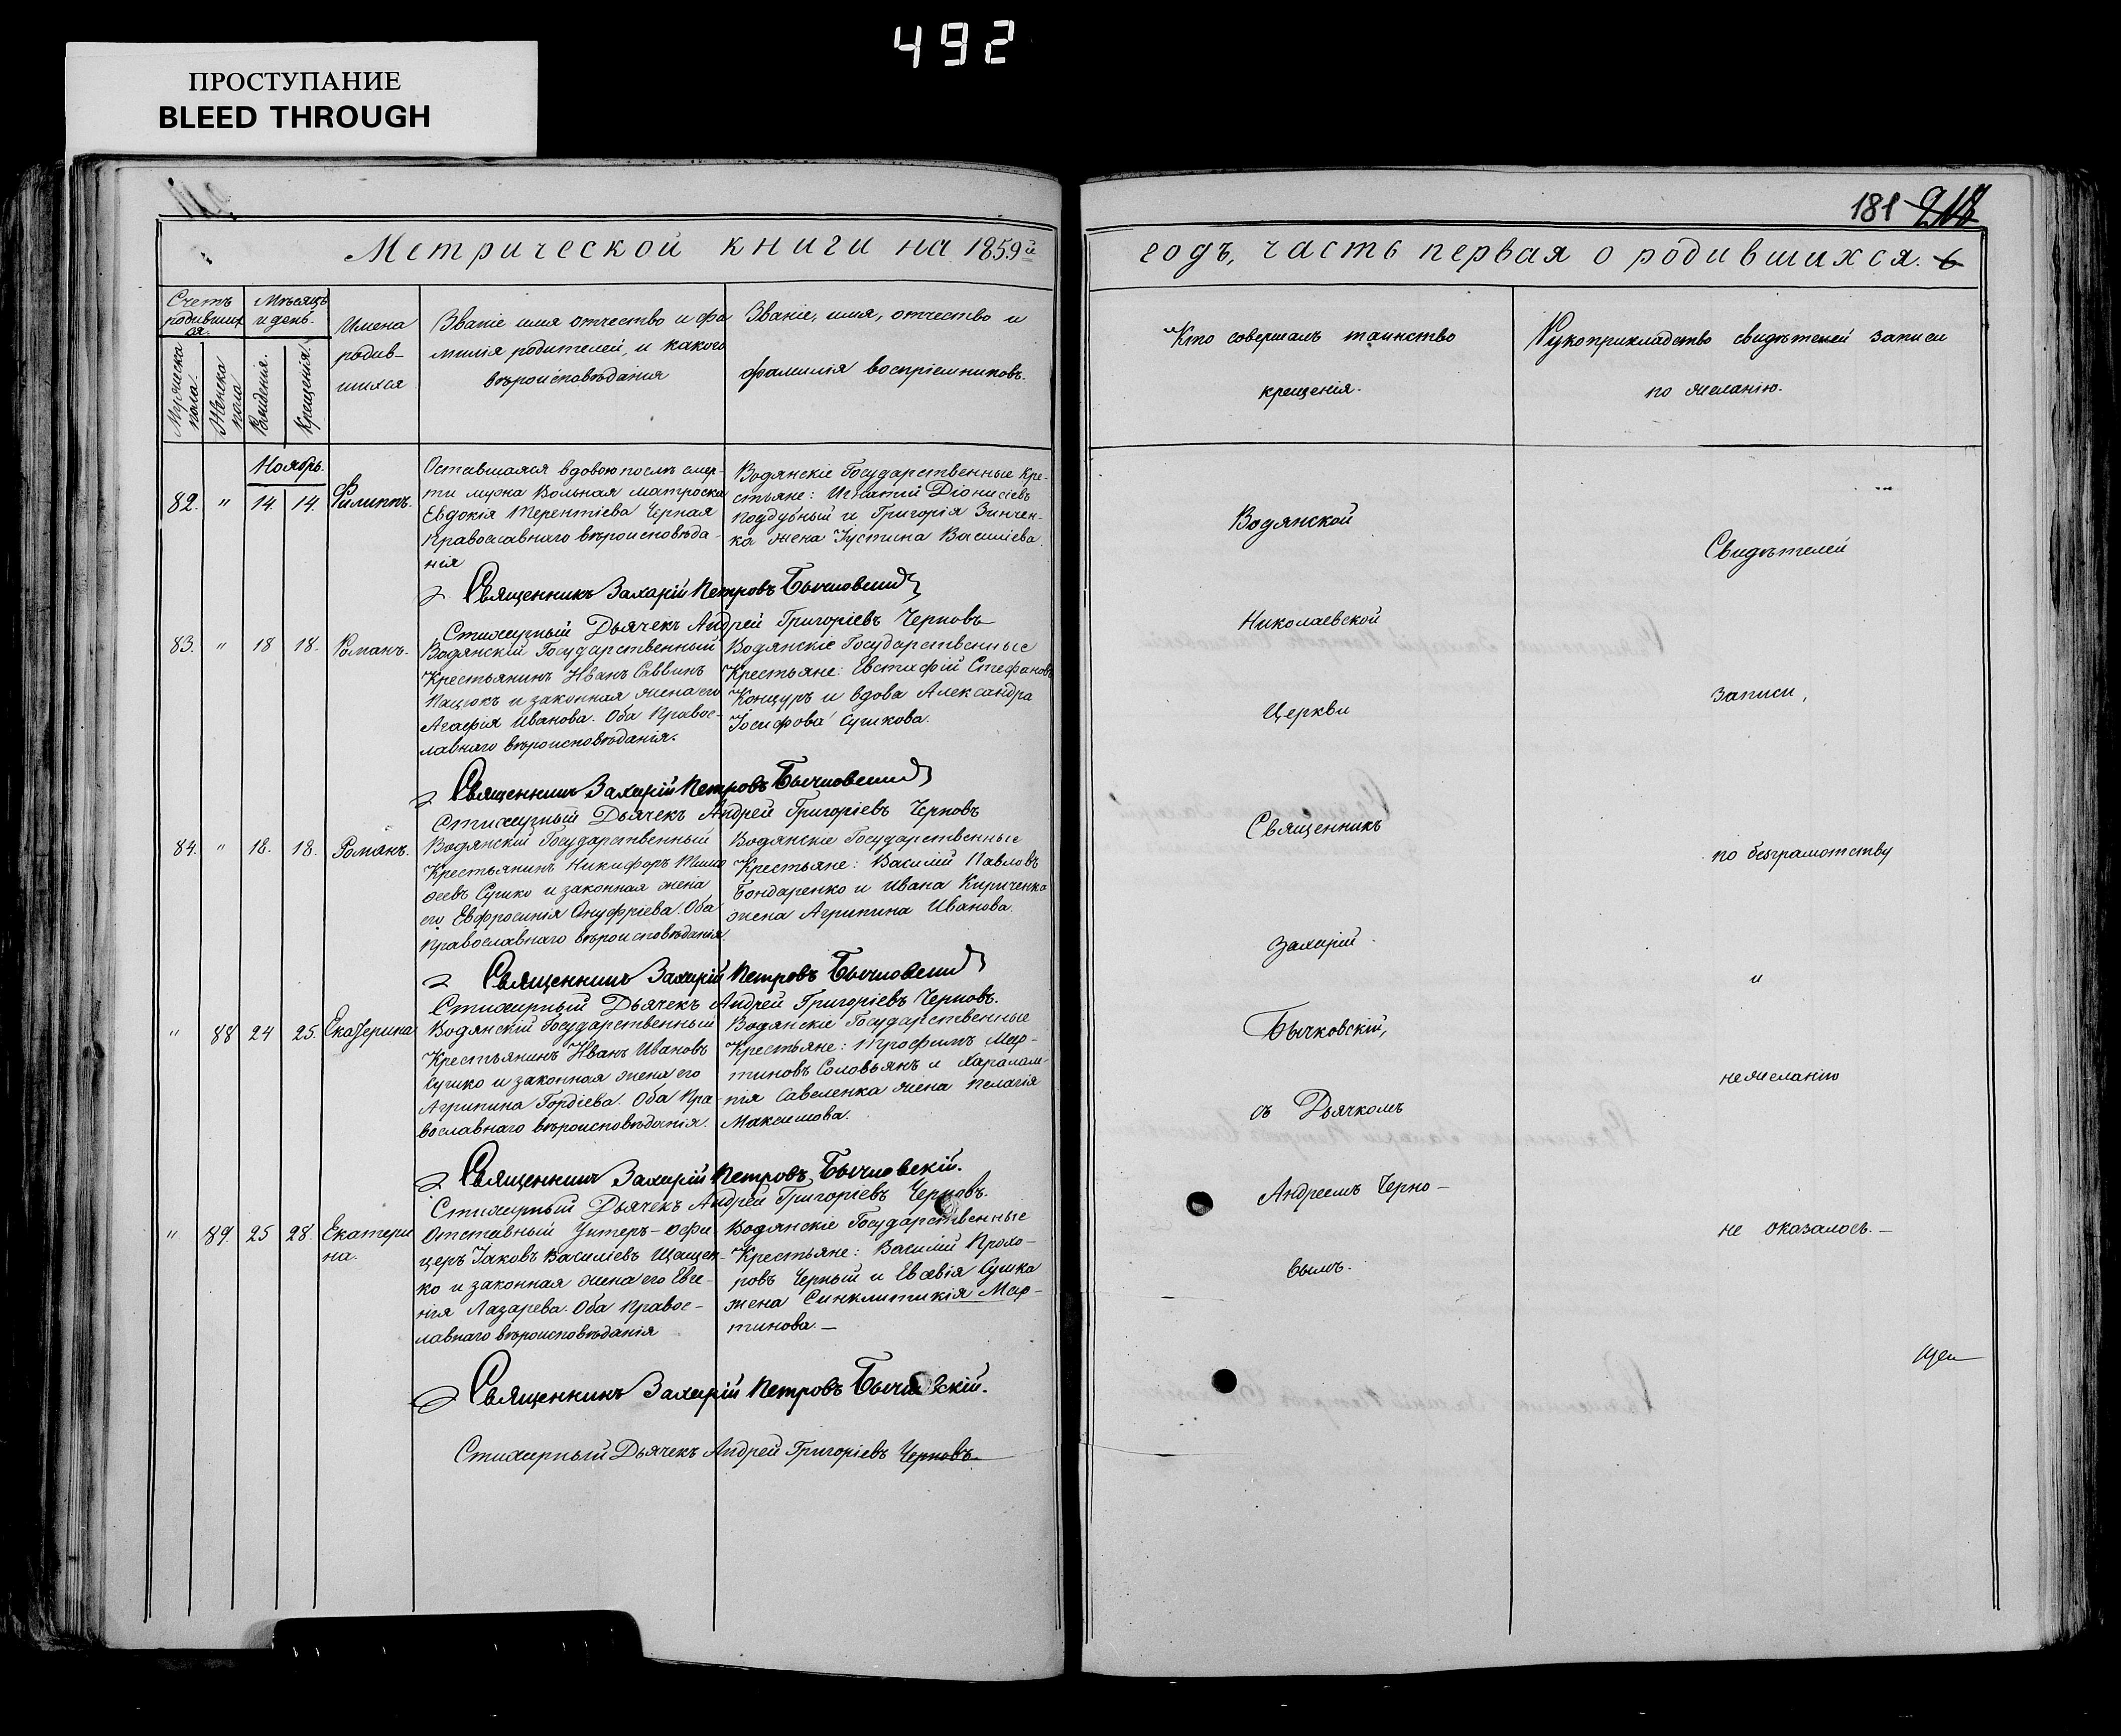 492
ПРОСТУПАНИЕ
BLEED THROUGH
181 218
Метрической книги на 1859й
годъ, часть первая о родившихся. 6
Счетъ родившихся.
Мѣсяцъ и день.
Мужеска пола.
Женска пола
Рожденія.
Крещенія.
Имена
родив-
шихся
Званіе имя отчество и фа
милія родителей, и какого
вѣроисповѣданія
Званіе, имя, отчество и
фамилія воспріемниковъ.
Кто совершалъ таинство
крещенія.
Рукоприкладство свидѣтелей записи
по желанію.
Ноябрь.
82. " 14. 14. Филиппъ.
Оставшаяся вдовою послѣ смер-
ти мужа Вольная матроска
Евдокія Терентіева Черная
Православнаго вѣроисповѣда-
нія
Водянскіе Государственные Кре-
стьяне: Игнатій Діонисіевъ
Поддубный и Григорія Зинчен-
ка жена Іустина Василіева.
Священникъ Захарій Петровъ Бычковскій
Стихарный Дьячекъ Андрей Григоріевъ Черновъ
83. " 18 18. Романъ.
Водянскій Государственный
Крестьянинъ Иванъ Саввинъ
Пацюкъ и законная жена его
Агафія Иванова. Оба Правос-
лавнаго вѣроисповѣданія.
Водянскіе Государственные
Крестьяне: Евстафій Стефановъ
Концуръ и вдова Александра
Іосифова Сушкова.
Священникъ Захарій Петровъ Бычковскій
Стихарный Дьячекъ Андрей Григоріевъ Черновъ
84. " 18. 18. Романъ.
Водянскій Государственный
Крестьянинъ Никифоръ Тимо
феевъ Сушко и законная жена
его Евфросинія Онуфріева. Оба
Православнаго вѣроисповѣданія.
Водянскіе Государственные
Крестьяне: Василій Павловъ
Бондаренко и Ивана Кириченка
жена Агрипина Иванова.
Священникъ Захарій Петровъ Бычковскій
Стихарный Дьячекъ Андрей Григоріевъ Черновъ.
" 88 24 25. Екатерина
Водянскій Государственный
Крестьянинъ Иванъ Ивановъ
Сушко и законная жена его
Агрипина Гордіева. Оба Пра-
вославнаго вѣроисповѣданія.
Водянскіе Государственные
Крестьяне: Трофимъ Мар-
тиновъ Соловьянъ и Харалам-
пія Савеленка жена Пелагія
Максимова.
Священникъ Захарій Петровъ Бычковскій.
Стихарный Дьячекъ Андрей Григоріевъ Черновъ.
" 89. 25 28. Екатери
на.
Отставный Унтеръ-Офи
церъ Іаковъ Василіевъ Щащен-
ко и законная жена его Евге-
нія Лазарева. Оба Правос-
лавнаго вѣроисповѣданія
Водянскіе Государственные
Крестьяне: Василій Прохо-
ровъ Черный и Евсевія Сушка
жена Синклитикія Мар-
тинова.—
Священникъ Захарій Петровъ Бычковскій.
Стихарный Дьячекъ Андрей Григоріевъ Черновъ.
Водянской
Николаевской
Церкви
Священникъ
Захарій
Бычковскій,
съ Дьячкомъ
Андреемъ Черно-
вымъ.
Свидѣтелей
записи,
по безграмотству
и
нежеланію
не оказалось.—